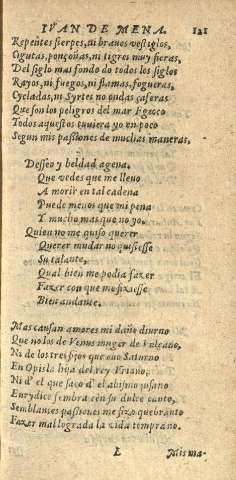 IVAN DE MENA. 121
Repentes sierpes, ni brauos vestiglos,
Cigutas, ponçoñas, ni tigres muy fieras,
Del siglo mas fondo do todos los siglos
Rayos, ni fuegos, ni flamas, fogueras,
Cycladas, ni Syrtes no ondas caseras
Que son los peligros del mar Egeoco
Todos aquestos tuuiera yo en poco
Segun mis passiones de muchas maneras,
Desseo y beldad agena,
Que vedes que me lleuo
A morir en tal cadena
Puede menos que mi pena
Y mucho mas que no yo,
Quien no me quiso querer
Querer mudar no quisiesse
Su talante,
Qual bien me podia fazer
Fazer con que me fiziesse
Bien andante.
Mas causan amores mi daño diurno
Que no los de Venus muger de Vulcano,
Ni de los tres fijos que ouo Saturno
En Opis la hija del rey Vriano,
Ni d'el que saco d'el abismo insano
Eurydice fembra con su dulce canto,
Semblantes passiones me fizo quebranto
Fazer mal lograda la vida temprano.
L Mis ma-